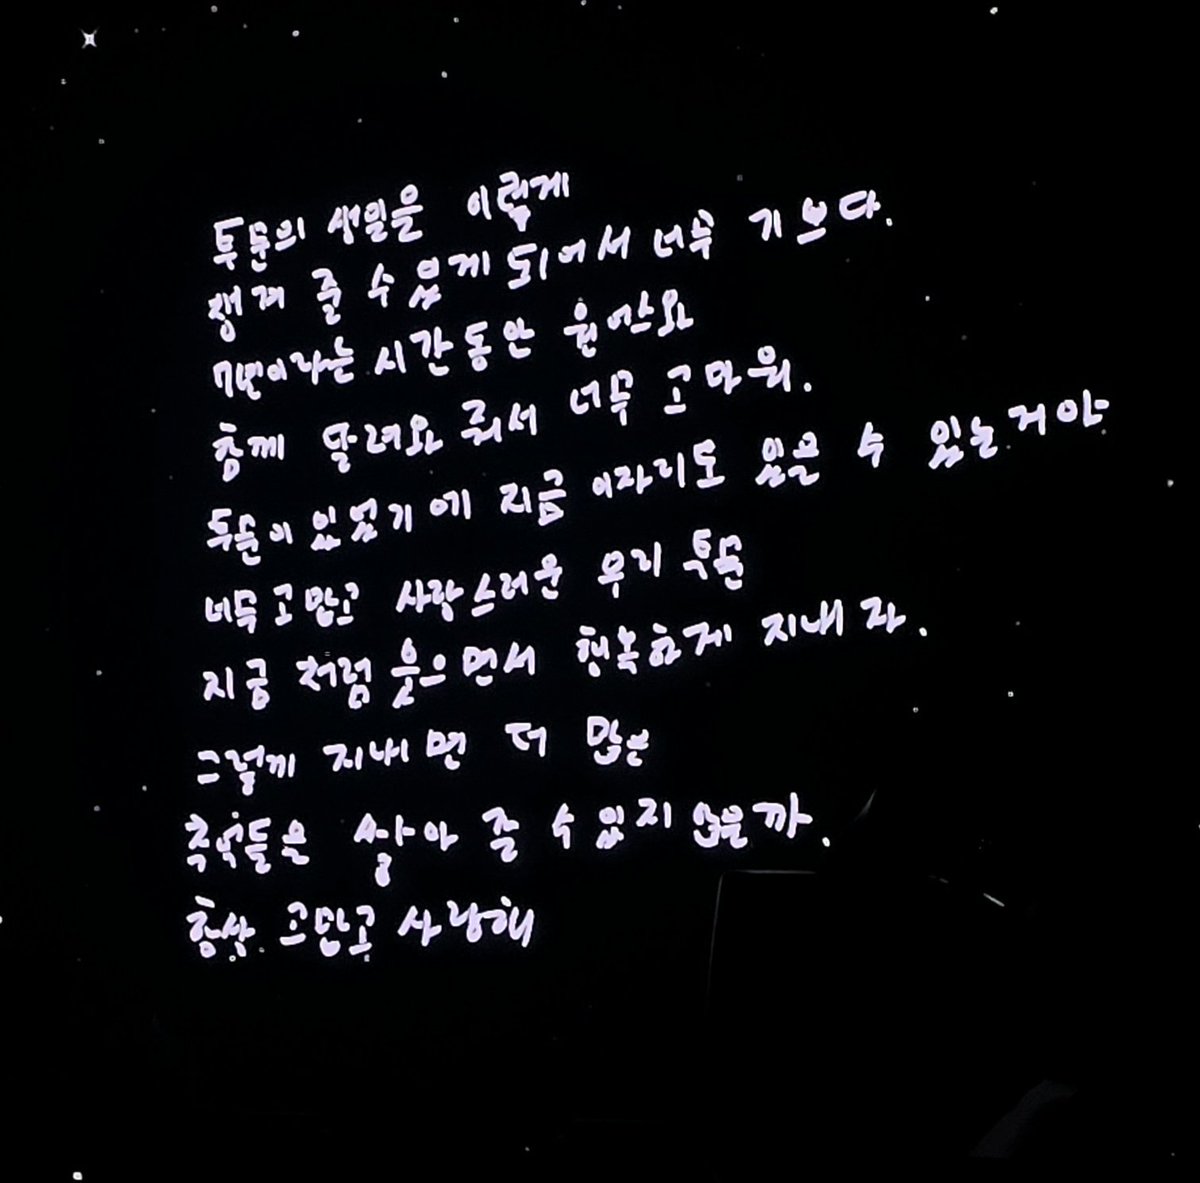 투문의 생일을 이렇게
챙겨 줄 수 있게 되어서 너무 기쁘다.
7년이라는 시간동안 원어스와
함께 달려와 줘서 너무 고마워.
투문이 있었기에 지금 이자리도 있을 수 있는거야
너무 고맙고 사랑스러운 우리 투문
지금처럼 웃으면서 행복하게 지내자.
그렇게 지내면 더 많은
추억들을 쌓아 줄 수 있지 않을까.
항상 고맙고 사랑해